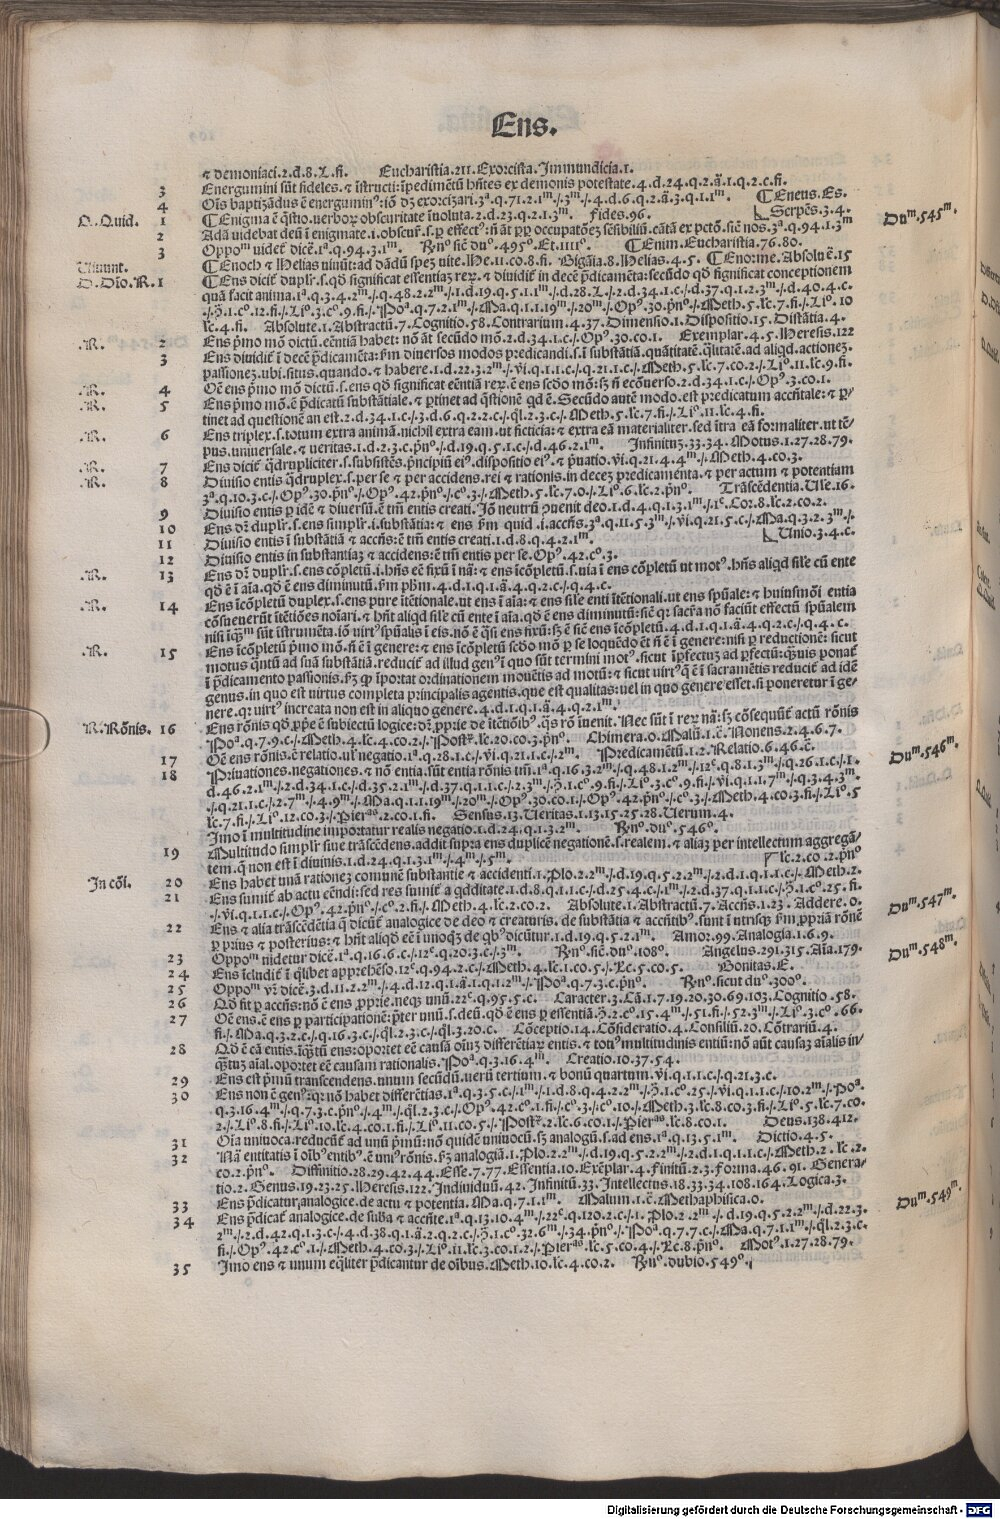 Ens.
⁊ demoniaci.2.d.8.L.fi. Eucharistia.211.Exorcista.Immundicia.1.
3 Energumini sūt fideles.⁊ īstructi:īpedimētū hñtes ex demonis potestate.4.d.24.q.2.ā.1.q.2.c.fi.
4 Oīs baptizādus ē energuminꝰ:iō dꝫ exorcizari.3ª.q.71.2.1ᵐ./.3ᵐ./.4.d.6.q.2.ā.3.q.1.1ᵐ. ⸿Eneus.Es.
Q.Quid. 1 ⸿Enigma ē q̄stio.verboꝝ obscuritate īuoluta.2.d.23.q.2.1.3ᵐ. Fides.96. Serpēs.3.4. Duᵐ.545ᵐ.
2 Adā videbat deū ī enigmate.i.obscur̄.s.ꝑ effectꝰ:ñ āt ꝓꝑ occupatōeꝫ sēsibiliū.eātā ex pctō.sic̄ nos.3ª.q.94.1.3ᵐ
3 Oppoᵐ videt dicē.1ª.q.94.3.1ᵐ. Ryⁿᵒ sic̄ duᵒ.495º.Et.1111º. ⸿Enim.Eucharistia.76.80.
Uiuunt. ⸿Enoch ⁊ Helias viuūt:ad dādū speꝫ vite.He.11.co.8.fi. Bigāia.8.Helias.4.5. ⸿Enorme.Absolu ē.15
D.Dīo.R. 1 ⸿Ens dicit duplr̄.s.qđ significat essentiaꝫ reꝝ.⁊ diuidit in decē p̄dicamēta:secūdo qđ significat conceptionem
quā facit anima.1ª.q.3.4.2ᵐ./.q.48.2.2ᵐ./.1.d.19.q.5.1.1ᵐ./.d.28.L./.2.d.34.1.c./.d.37.q.1.2.3ᵐ./.d.40.4.c.
lc.4.fi. Absolute.1.Abstractū.7.Cognitio.58.Contrarium.4.37.Dimensio.1.Dispositio.15.Distātia.4.
.R. 2 Ens p̄mo mō dictū.eētiā habet: nō āt secūdo mō.2.d.34.1.c./.Opꝰ.30.co.1. Exemplar.4.5.Heresis.122
3 Ens diuidit ī decē p̄dicamēta:ꝑm diuersos modos predicandi.s.ī substātiā.quātitatē.q̄litatē.ad aliqđ.actioneꝫ.
passioneꝫ.ubi.situs.quando.⁊ habere.1.d.22.3.2ᵐ./.vi.q.1.1.c./.q.21.1.c./.Meth.5.lc.7.co.2./.Liº.11.lc.9.fi.
.R. 4 Oē ens p̄mo mō dictū.s.ens qđ significat eētiā reꝝ.ē ens scđo mō:sꝫ ñ ecōuerso.2.d.34.1.c./.Opꝰ.3.co.1.
.R. 5 Ens p̄mo mō.ē p̄dicatū substātiale.⁊ ꝑtinet ad q̄stionē qđ ē.Secūdo autē modo.est predicatum accñtale:⁊ ꝑ/
tinet ad questionē an est.2.d.34.1.c./.3.d.6.q.2.2.c./.q̄l.2.3.c./.Meth.5.lc.7.fi./.Liº.11.lc.4.fi.
.R. 6 Ens triplex.s.totum extra animā.nichil extra eam.ut ficticia:⁊ extra eā materialiter.sed ītra eā formaliter.ut tē/
pus.vniuersale.⁊ veritas.1.d.2.3.c.pⁿº./.d.19.q.5.1.c./.d.46.2.1ᵐ. Infinituꝫ.33.34.Motus.1.27.28.79.
.R. 7 Ens dicit̄ q̄drupliciter.s.subsistēs.p̄ncipiū eiꝰ.dispositio eiꝰ.⁊ p̄uatio.vi.q.21.4.4ᵐ./.Meth.4.co.3.
.R. 8 Diuisio entis q̄druplex.s.per se ⁊ per accidens.rei ⁊ rationis.in deceꝫ predicamenta.⁊ per actum ⁊ potentiam
3ª.q.10.3.c./.Opꝰ.30.pⁿº./.Opꝰ.42.pⁿº./.cº.3./.Meth.5.lc.7.0./.Liº.6.lc.2.pⁿº. Trāscēdentia.Ule.16.
9 Diuisio entis ꝑ idē ⁊ diuersū.ē tm̄ entis creati.Iō neutrū ꝯuenit deo.1.d.4.q.1.3.1ᵐ./.1ᶜ.Cor.8.lc.2.co.2.
10 Ens dr̄ duplr̄.s.ens simplr̄.i.substātia:⁊ ens ꝑm quid.i.accñs.3ª.q.11.5.3ᵐ./.vi.q.21.5.c./.Ma.q.3.2.3ᵐ./.
11 Diuisio entis ī substātiā ⁊ accñs:ē tm̄ entis creati.1.d.8.q.4.2.1ᵐ. Unio.3.4.c.
12 Diuisio entis in substantiaꝫ ⁊ accidens:ē tm̄ entis per se.Opꝰ.42.cº.3.
.R. 13 Ens dr̄ duplr̄.s.ens cōpletū.i.hñs eē fixū ī nā:⁊ ens īcōpletū.s.uia ī ens cōpletū ut motꝰ.hñs aliqđ sile cū ente
qđ ē ī aīa.qđ ē ens diminutū.ꝑm pħm.4.d.1.q.1.ā.4.q.2.c./.q.4.c.
.R. 14 Ens īcōpletū duplex.s.ens pure itētionale.ut ens ī aīa:⁊ ens sile enti itētionali.ut ens spūale:⁊ huiusmōi entia
cōsueuerūt itētiōes noīari.⁊ hñt aliqđ sile cū ente ī aīa.qđ ē ens diminutū:sic̄ qꝛ sacr̄a nō faciūt effectū spūalem
nisi īqᵐ̄ sūt īstrumēta.iō virtꝰ spūalis ī eis.nō ē q̄si ens fixū:sꝫ ē sic̄ ens īcōpletū.4.d.1.q.1.ā.4.q.2.c./.q.4.c.
.R. 15 Ens īcōpletū p̄mo mō.ñ ē ī genere:⁊ ens īcōpletū scđo mō ꝑ se loquēdo ēt ñ ē ī genere:nisi ꝑ reductionē: sicut
motus quātū ad suā substātiā.reducit̄ ad illud genꝰ ī quo sūt termini motꝰ.sicut īꝑfectuꝫ ad ꝑfectū:q̄uis ponat̄
ī p̄dicamento passionis.ꝑꝫ ꝙ īportat ordinationem mouētis ad motū:⁊ sicut virtꝰ q̄ ē ī sacramētis reducit̄ ad idē
genus.in quo est virtus completa principalis agentis.que est qualitas:uel in quo genere esset.si poneretur ī ge/
nere.qꝛ virtꝰ increata non est in aliquo genere.4.d.1.q.1.ā.4.q.2.1ᵐ.
R.Rōnis. 16 Ens rōnis qđ ꝓpe ē subiectū logice:dr̄ ꝓprie de itētiōibꝰ.q̄s rō īuenit.Nec sūt ī reꝝ nā:sꝫ cōsequūt̄ actū rōnis
Poª.q.7.9.c./.Meth.4.lc.4.co.2./.Postꝝ.lc.20.co.3.pⁿº. Chimera.0.Malū.1.c̄.Nonens.2.4.6.7.
17 Oē ens rōnis.ē relatio.ul̄ negatio.1ª.q.28.1.c./.vi.q.21.1.c./.2ᵐ. Predicamētū.1.2.Relatio.6.46.c̄. Duᵐ.546ᵐ.
18 Priuationes.negationes.⁊ nō entia.sūt entia rōnis tm̄.1ª.q.16.3.2ᵐ./.q.48.1.2ᵐ./.12ᶜ.q.8.1.3ᵐ./.q.26.1.c./.1.
d.46.2.1ᵐ./.2.d.34.1.c./.d.35.2.1ᵐ./.d.37.q.1.1.c./.2.3ᵐ./.
./.q.21.1.c./.2.7ᵐ./.4.9ᵐ./.Ma.q.1.1.19ᵐ./.20ᵐ./.Opꝰ.30.co.1./.Opꝰ.42.pⁿº./.cº.3./.Meth.4.co.3.fi./.Liº.5
lc.7.fi./.Liº.12.co.3./.Pierᵃˢ.2.co.1.fi. Sensus.13.Ueritas.1.13.15.25.28.Uerum.4.
Imo ī multitudine importatur realis negatio.1.d.24.q.1.3.2ᵐ. Ryⁿº.duº.546º.
19 Multitudo simplr̄ siue trāscēdens.addit supra ens duplicē negationē.s.realem.⁊ aliaꝫ per intellectum aggregā/
tem.q̄ non est ī diuinis.1.d.24.q.1.3.1ᵐ./.4ᵐ./.5ᵐ. lc.2.co.2.pⁿº
In cōi. 20 Ens habet unā rationeꝫ comunē substantie ⁊ accidenti.1.Plo.2.2ᵐ./.d.19.q.5.2.2ᵐ./.2.d.1.q.1.1.c./.Meth.2.
21 Ens sumit̄ ab actu eēndi:sed res sumit̄ a qdditate.1.d.8.q.1.1.c./.d.25.4.c./.1ᵐ./.2.d.37.q.1.1.c./.
./.vi.q.1.1.c./.Opꝰ.42.pⁿº./.cº.2.fi./.Meth.4.lc.2.co.2. Absolute.1.Abstractū.7.Accñs.1.23.Addere.0. Duᵐ.547ᵐ.
22 Ens ⁊ alia trāscēdētia q̄ dicūt̄ analogice de deo ⁊ creaturis.de substātia ⁊ accñtibꝰ.sunt ī utrisqꝫ ꝑm ꝓpriā rōnē
ꝑ prius ⁊ posterius:⁊ hñt aliqđ eē ī unoqꝫ de qbꝰ dicūtur.1.d.19.q.5.2.1ᵐ. Amor.99.Analogia.1.6.9.
23 Oppoᵐ uidetur dicē.1ª.q.16.6.c./.12ᶜ.q.20.3.c./.3ᵐ. Ryⁿº.sic̄.duº.108º. Angelus.291.315.Aīa.179. Duᵐ.548ᵐ.
24 Ens īcludit̄ ī q̄libet apprehēso.12ᶜ.q.94.2.c./.Meth.4.lc.1.co.5./.Ec.5.co.5. Bonitas.E.
25 Oppoᵐ vr̄ dicē.3.d.11.2.2ᵐ./.4.d.12.q.1.ā.1.q.1.2ᵐ./.Poª.q.7.3.c.pⁿº. Ryⁿº.sicut duº.300º.
26 Qđ fit ꝑ accñs:nō ē ens ꝓprie.neqꝫ unū.22ᶜ.q.95.5.c. Caracter.3.Cā.1.7.19.20.30.69.103.Cognitio.58.
27 Oē ens.ē ens ꝑ participationē:p̄ter unū.s.deū.qđ ē ens ꝑ essentiā.
fi./.Ma.q.3.2.c./.q.16.3.c./.q̄l.2.3.c./.q̄l.3.20.c. Cōceptio.14.Cōsideratio.4.Consiliū.20.Cōtrariū.4.
28 Qđ ē cā entis.īq̄tū ens:oportet eē causā oīuꝫ differētiaꝝ entis.⁊ totiꝰ multitudinis entiū:nō aūt causaꝫ aīalis in/
q̄tuꝫ aīal.oportet eē causam rationalis.Poª.q.3.16.4ᵐ. Creatio.10.37.54.
29 Ens est p̄mū transcendens.unum secūdū.uerū tertium.⁊ bonū quartum.vi.q.1.1.c./.q.21.3.c.
30 Ens non ē genꝰ:qꝛ nō habet differētias.1ª.q.3.5.c./.1ᵐ./.1.d.8.q.4.2.2ᵐ./.
q.3.16.4ᵐ./.q.7.3.c.pⁿº./.4ᵐ./.q̄l.2.3.c./.Opꝰ.42.cº.1.fi./.cº.3./.cº.10./.Meth.3.lc.8.co.3.fi./.Liº.5.lc.7.co.
2./.Liº.8.fi./.Liº.10.lc.4.co.1.fi./.Liº.11.co.5./.Postꝝ.2.lc.6.co.1./.Pierᵃˢ.lc.8.co.1. Deus.138.412.
31 Oīa uniuoca.reducūt̄ ad unū p̄mū:nō quidē uniuocū.sꝫ analogū.s.ad ens.1ª.q.13.5.1ᵐ. Dictio.4.5.
32 Nā entitatis ī oībꝰ entibꝰ.ē uniꝰ rōnis.ꝑm analogiā.1.Plo.2.2ᵐ./.d.19.q.5.2.2ᵐ./.2.d.1.q.1.1.c./.Meth.2.lc.2.
co.2.pⁿº. Diffinitio.28.29.42.44.Esse.7.77.Essentia.10.Exēplar.4.Finitū.2.3.Forma.46.91.Genera/
tio.2.Genus.19.23.25.Heresis.122.Indiuiduū.42.Infinitū.33.Intellectus.18.33.34.108.164.Logica.3.
33 Ens p̄dicatur analogice.de actu ⁊ potentia.Ma.q.7.1.1ᵐ. Malum.1.c̄.Methaphisica.0. Duᵐ.549ᵐ.
34 Ens p̄dicat̄ analogice.de suba ⁊ accñte.1ª.q.13.10.4ᵐ./.22ᶜ.q.120.2.c./.1.Plo.2.2ᵐ./.d.19.q.5.2.2ᵐ./.d.22.3.
fi./.Opꝰ.42.cº.1./.Meth.4.co.3./.Liº.11.lc.3.co.1.2./.Pierᵃˢ.lc.5.co.4./.Ec.8.pⁿº. Motꝰ.1.27.28.79.
35 Imo ens ⁊ unum eq̄liter p̄dicantur de oībus.Meth.10.lc.4.co.2. Ryⁿº.dubio.549º.
Digitalisierung gefördert durch die Deutsche Forschungsgemeinschaft - DFG